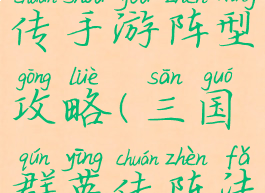 chuán shǒu yóu zhèn xíng
传手游阵型
gōng lüè sān guó
攻略(三国
qún yīng chuán zhèn fǎ
群英传阵法